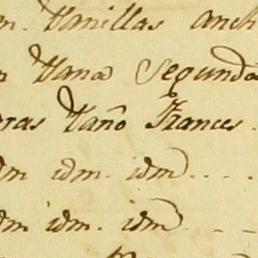 Vanillas anch
Vana Segunda
ras Vaño Frances.
idm idm. idm ....
idm. idm. idm